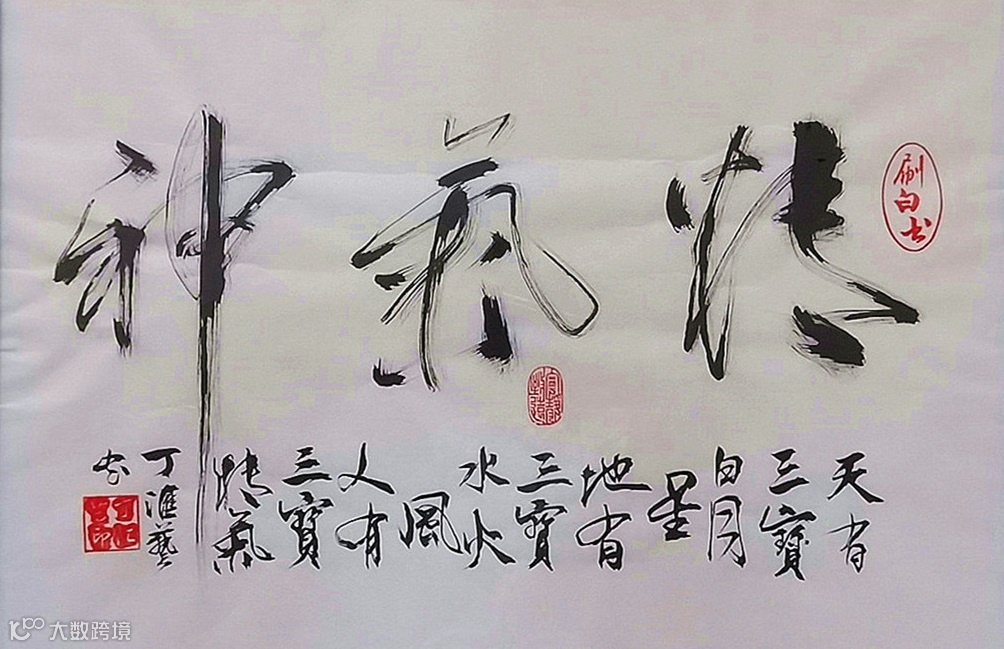 刷白书
精氣神
天有
三寶
日月
星
地有
三寶
水火
風
人有
三寶
精氣
丁淮藝
书
大数跨境